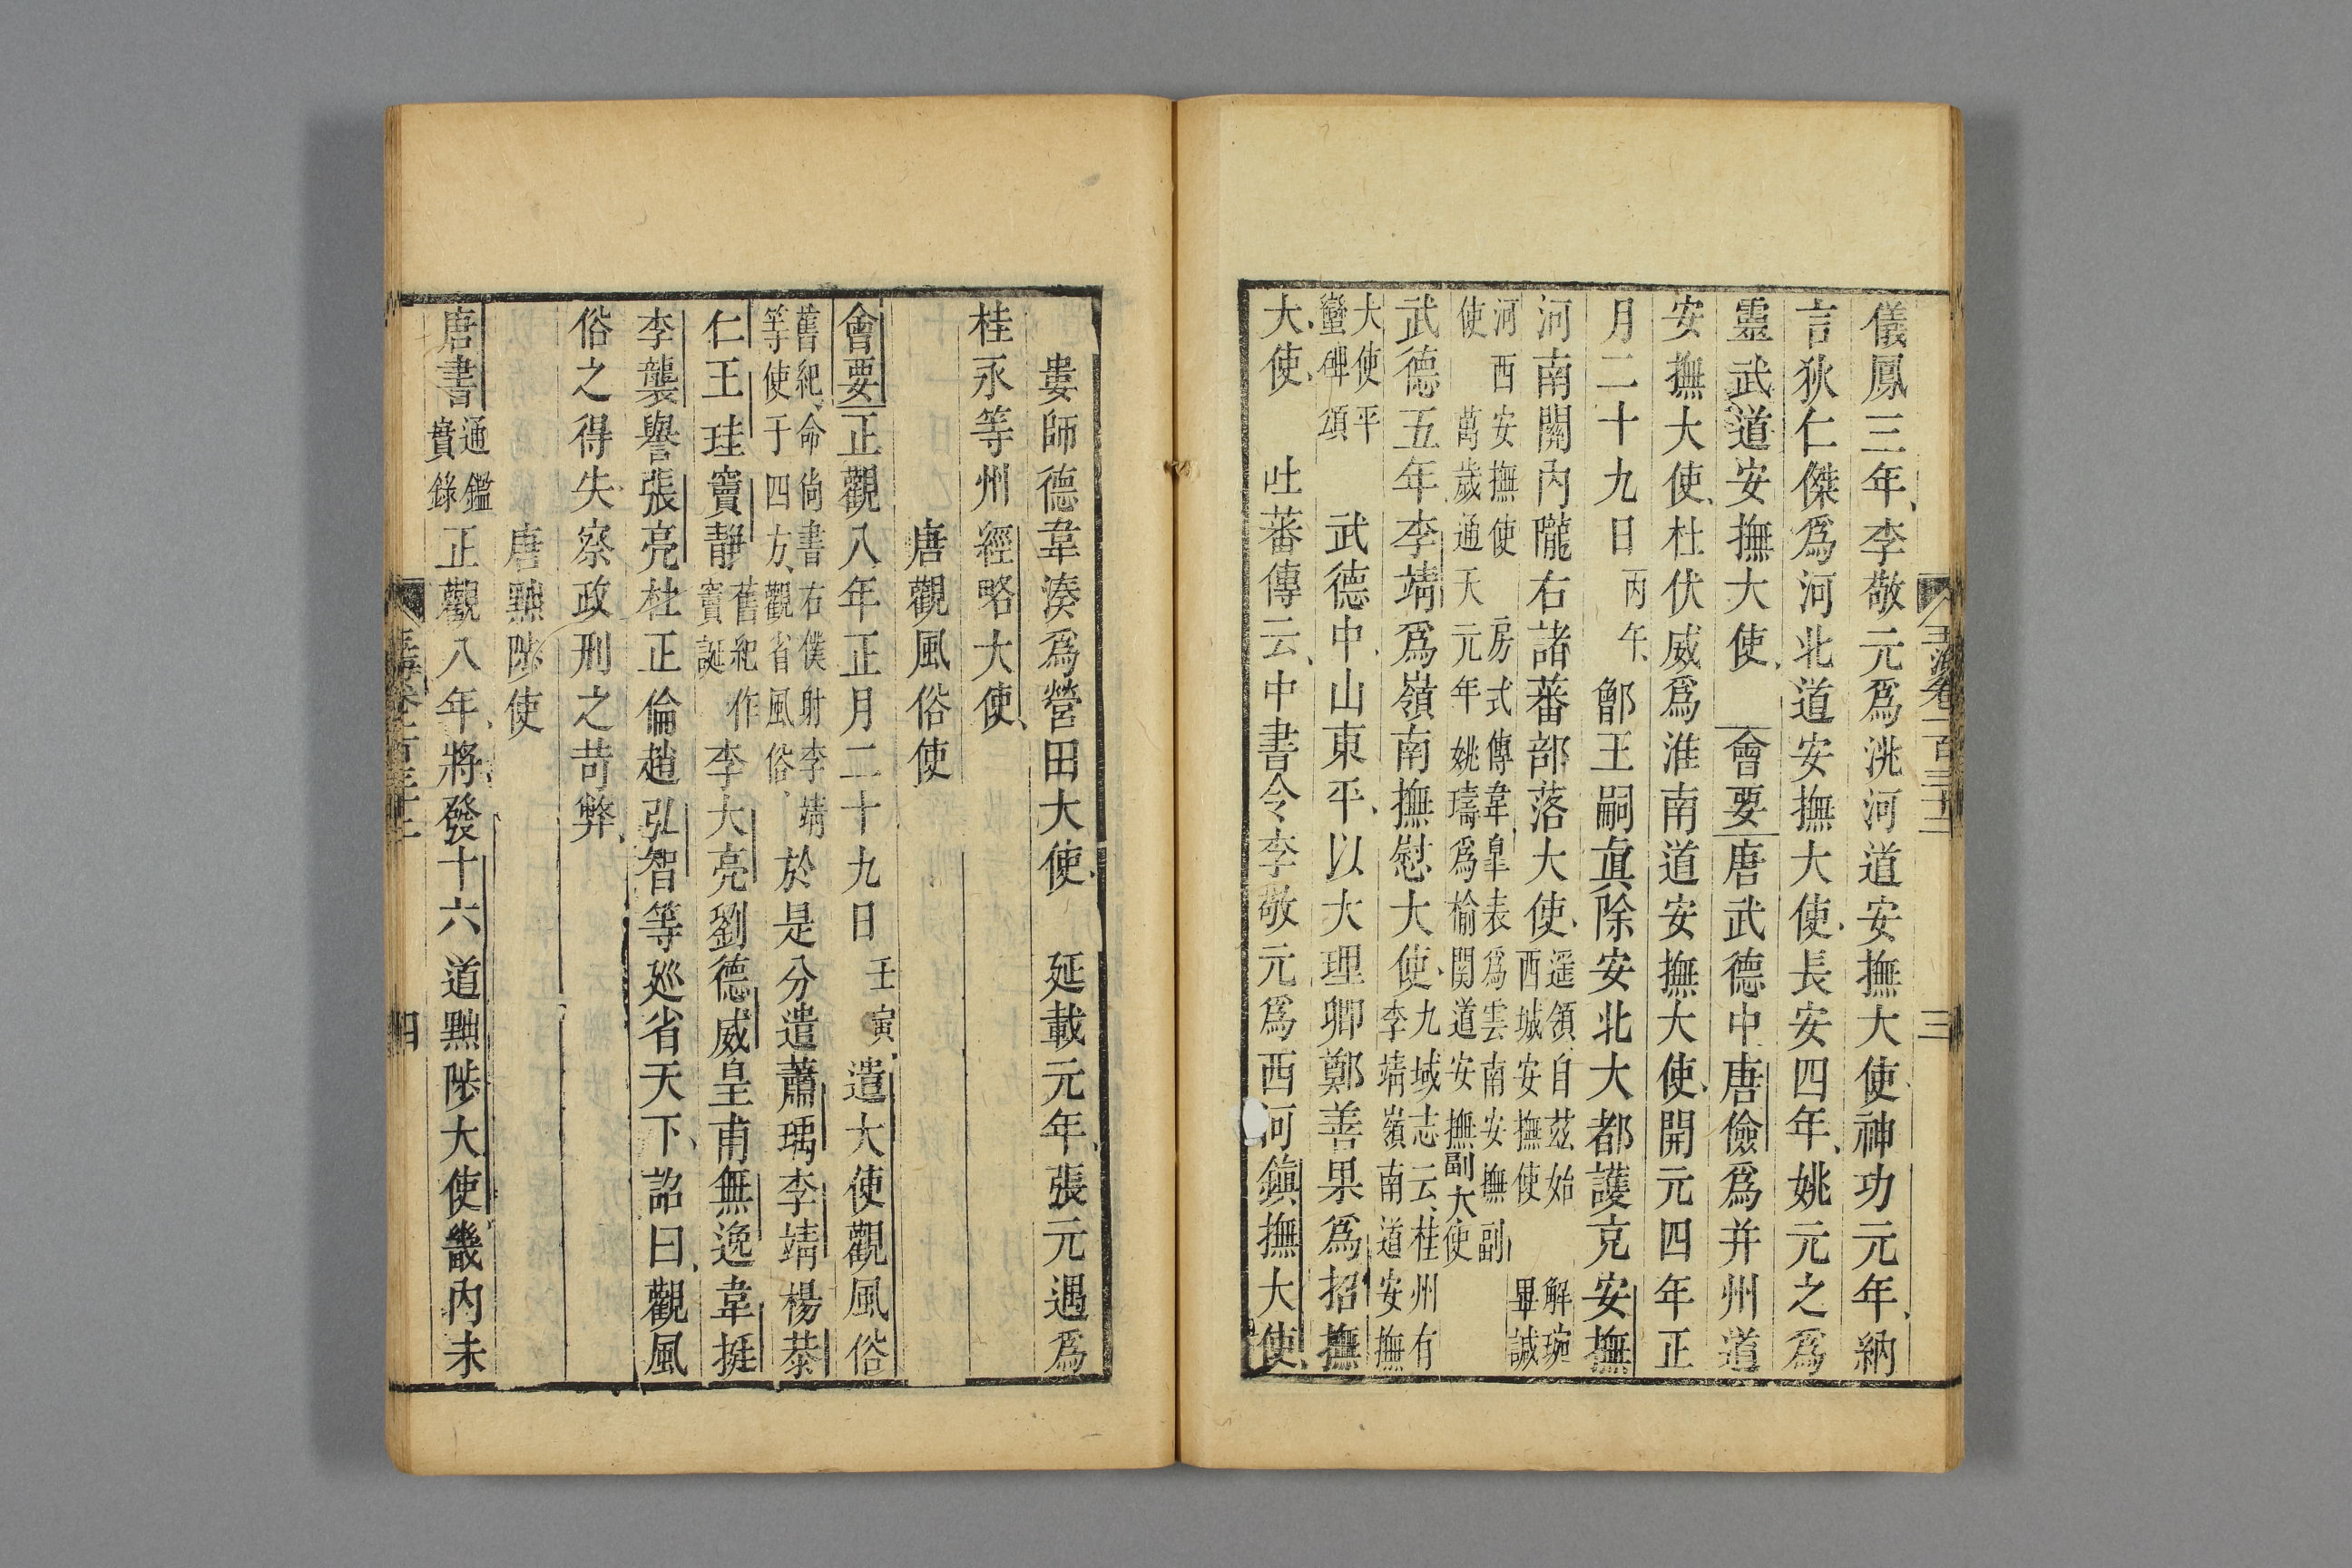 儀鳳三年李敬元爲洮河道安撫大使神功元年納
言狄仁傑爲河北道安撫大使長安四年姚元之爲
靈武道安撫大使 會要唐武德中唐儉爲并州道
安撫大使杜伏威爲淮南道安撫大使開元四年正
月二十九日丙午鄫王嗣眞除安北大都護充安撫
河南關內隴右諸蕃部落大使遥領自茲始
西城安撫使 解琬
畢誠
河西安撫使 房式傳韋臯表爲雲南安撫副
使 萬歲通天元年姚璹爲榆關道安撫副大使
武德五年李靖爲嶺南撫慰大使九域志云桂州有
李靖嶺南道安撫
大使平
蠻碑頌 武德中山東平以大理卿鄭善果爲招撫
大使 吐蕃傳云中書令李敬元爲西河鎭撫大使
玉海卷一百三十二
三
婁師德韋湊爲營田大使 延載元年張元遇爲
桂永等州經略大使
唐觀風俗使
會要正觀八年正月二十九日壬寅遣大使觀風俗
舊紀命尙書右僕射李靖
等使于四方觀省風俗 於是分遣蕭瑀李靖楊恭
仁王珪竇靜舊紀作
竇誕李大亮劉德威皇甫無逸韋挺
李襲譽張亮杜正倫趙弘智等廵省天下詔曰觀風
俗之得失察政刑之苛弊
唐黜陟使
唐書通鑑
實錄正觀八年將發十六道黜陟大使畿內未
四